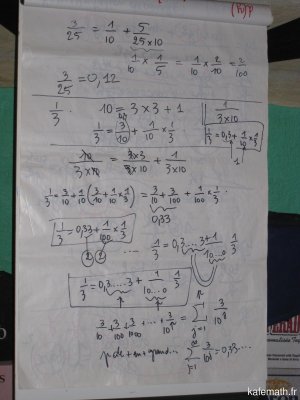 3/25 = 1/10 + 5/(25×10)
1/10 × 1/5 = 1/10 × 2/10 = 2/100
3/25 = 0,12
1/3. 10 = 3 × 3 + 1
1/(3×10)
1/3 = 3/10 + 1/10 × 1/3
1/3 = 0,3 + 1/10 × 1/3
10/(3×10) = (3×3)/(3×10) + 1/(3×10)
1/3 = 3/10 + 1/10 (3/10 + 1/10 × 1/3) = 3/10 + 3/100 + 1/100 × 1/3.
0,33
1/3 = 0,33 + 1/100 × 1/3
2 2
1/3 = 0,3...3 + 1/10...0 1/3
1/3 = 0,3....3 + 1/10...0 1/3
3/10 + 3/100 + 3/1000 + ... + 3/10^n = ∑ 3/10^j
j=1
∑ 3/10^j = 0,33...
j=1
katemath.fr